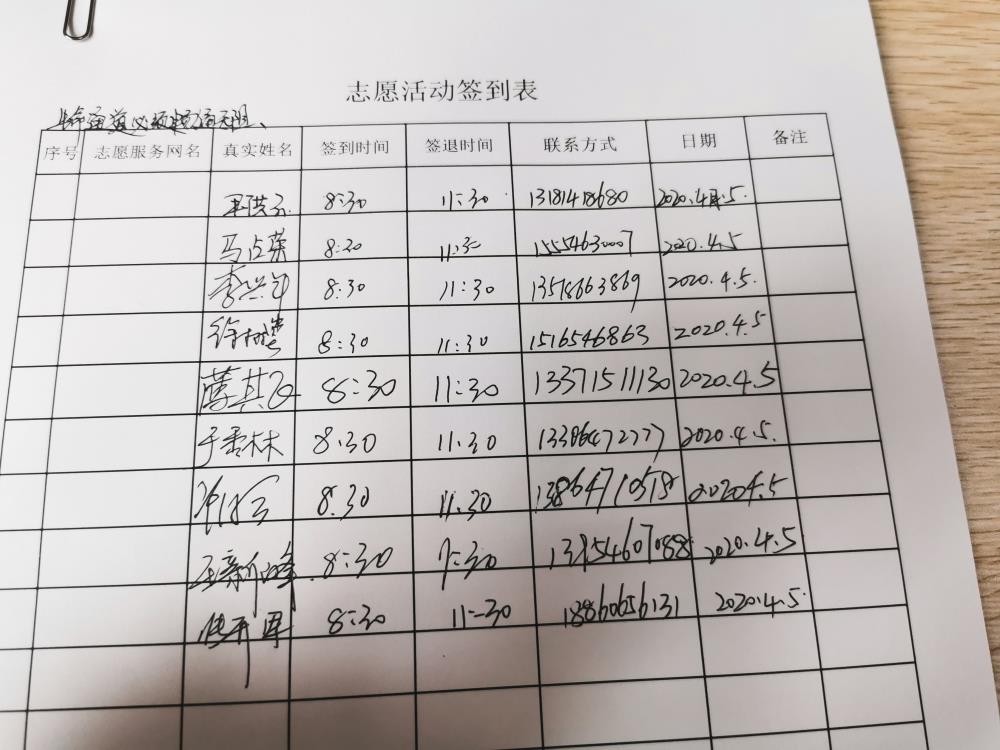 志愿活动签到表
序号 志愿服务网名 真实姓名 签到时间 签退时间 联系方式 日期 备注
8:30 11:30 13181418680 2020.4.5.
马占荣 8:30 11:30 15554630007 2020.4.5
李兴年 8:30 11:30 13518663869 2020.4.5.
徐树 8:30 11:30 1516546863 2020.4.5
其 8:30 11:30 13371511130 2020.4.5
于 林 8:30 11:30 13386472777 2020.4.5.
8:30 11.30 13864710518 2020.4.5
王新峰 8:30 2020.4.5
8:30 11:30 18860656131 2020.4.5